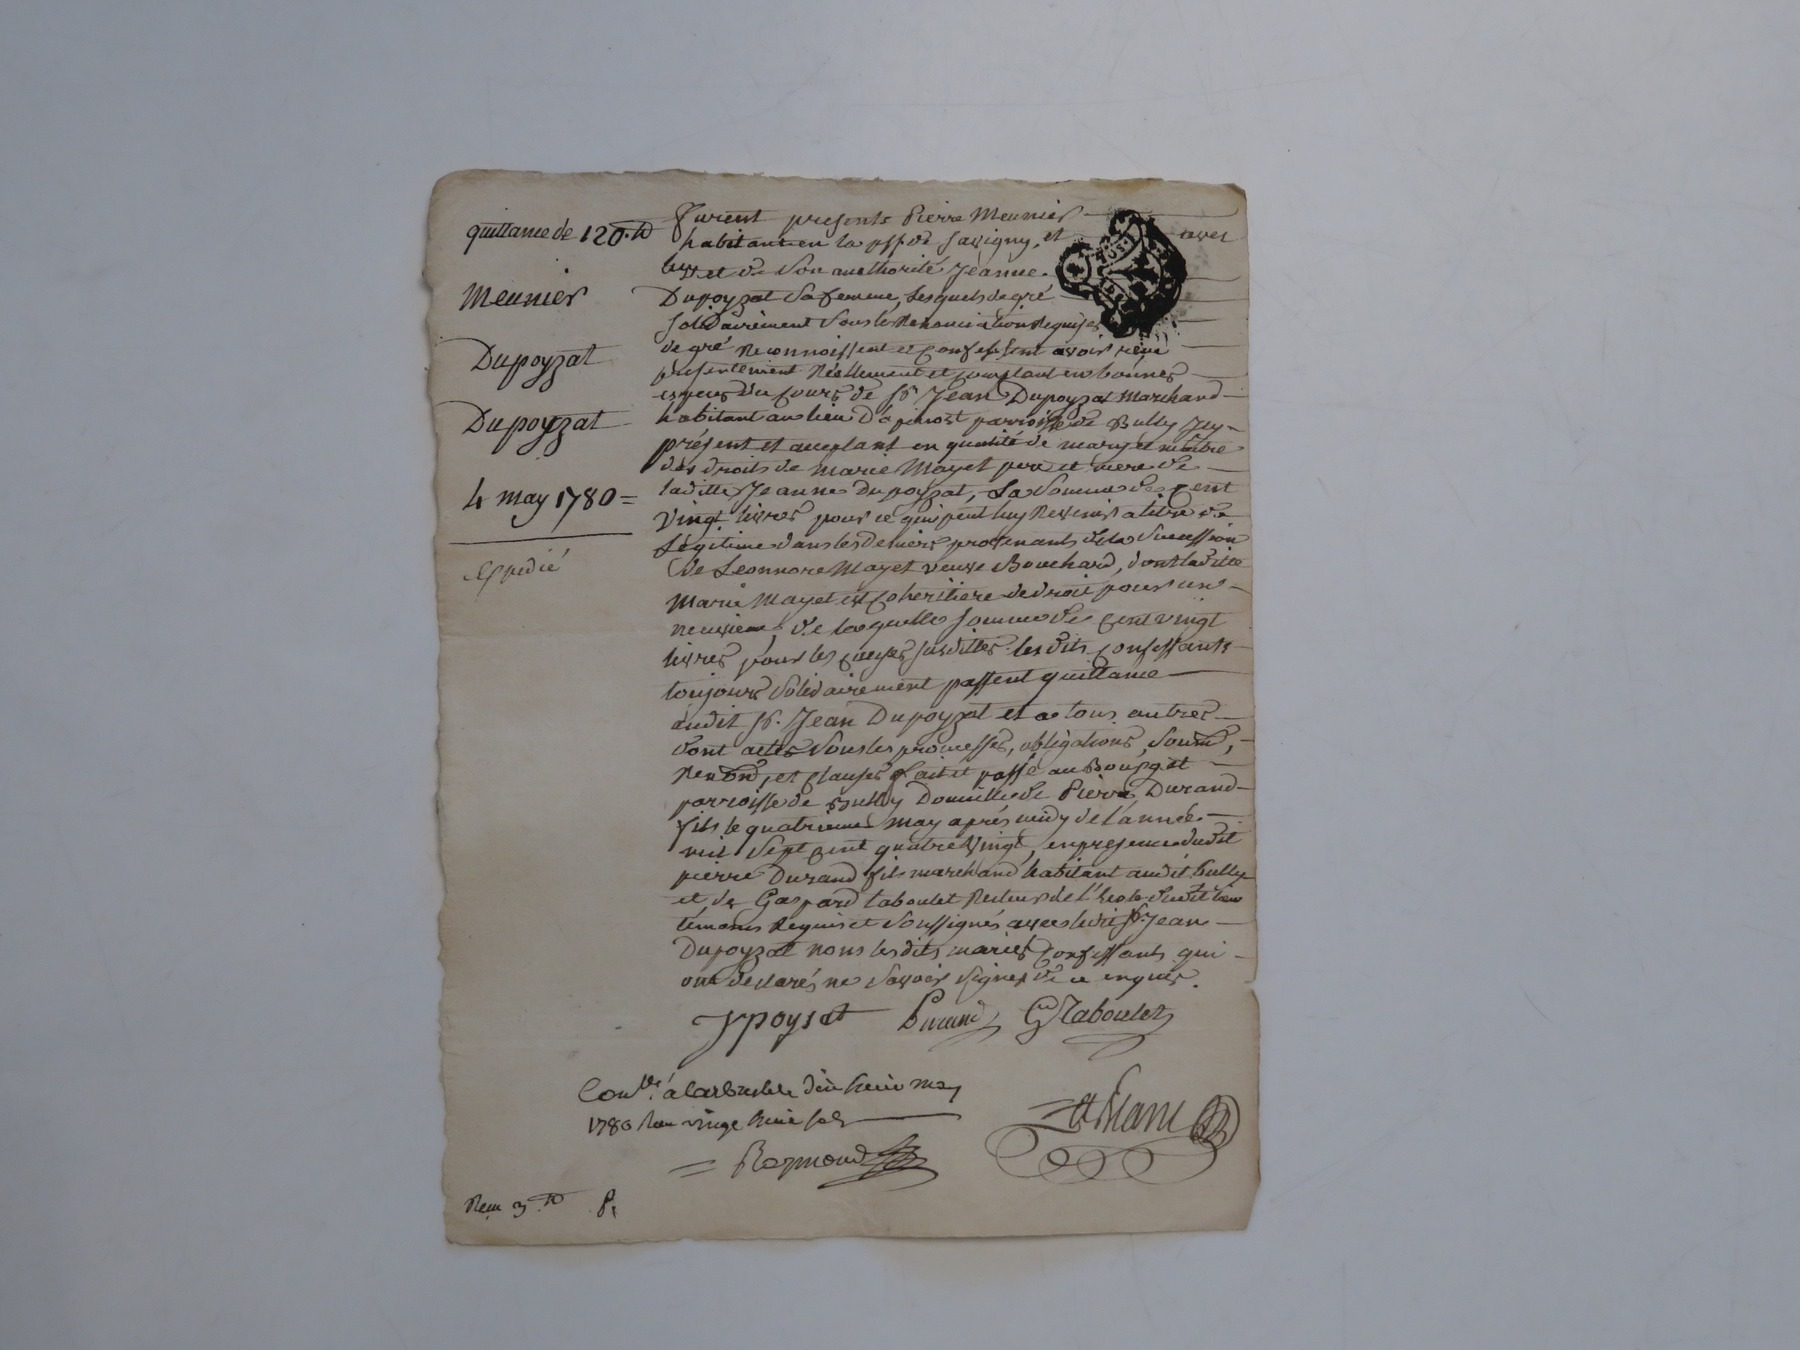 quittance de 120.tt
Meunier
Dupoyzat
Dupoyzat
4 may 1780 =
Expedié
Furent presents Pierre Meunier
habitant en la psse de Savigny, et avec
luy et de Son authorité Jeanne
Dupoyzat Sa femme, Lesquels de gré
Solidairement Sous les Renonciation Requises
de gré Reconnoissent et Confessent avoir reçu
presentement Réellement et comptant en bonnes
especes du cours de Sr. Jean Dupoyzat Marchand
habitant au lieu d'apinost parroisse de Bully Icy
présent et acceptant en qualité de mary et maitre
des droits de Marie Mayet pere et mere de
laditte Jeanne Dupoyzat, La Somme de Cent
Vingt livres pour ce qui peut luy Revenir a titre de
Légitime dans les deniers provenants de la Succession
de Leonnore Mayet veuve Bouchard, dont laditte
Marie Mayet est Coheritiere de droit pour un
neuvieme, de laquelle Somme de Cent vingt
livres pour les Causes Susdittes lesdits Confessants
toujours Solidairement passent quittance
audit Sr. Jean Dupoyzat et a tous autres
dont actes Sous les promesses, obligations, Soum,
Renon, et Clauses fait et passé au Bourg et
parroisse de Bully Domicille de Pierre Durand
fils le quatrieme May après midy de l'année
mil Sept Cent quatre Vingt, en presence dudit
pierre Durand fils marchand habitant audit bully
et de Gaspard taboulet Recteur de l'Ecole dudit lieu
temoins Requis et Soussignés avec ledit Sr. Jean
Dupoyzat non lesdits mariés Confessants qui
ont declarés ne Savoir Signer de ce enquis.
Dpoysat Durand G Taboulet
Conlé. à Larbresle 1780 Reçu vingt sols
= Raymond
Reçu 3.tt